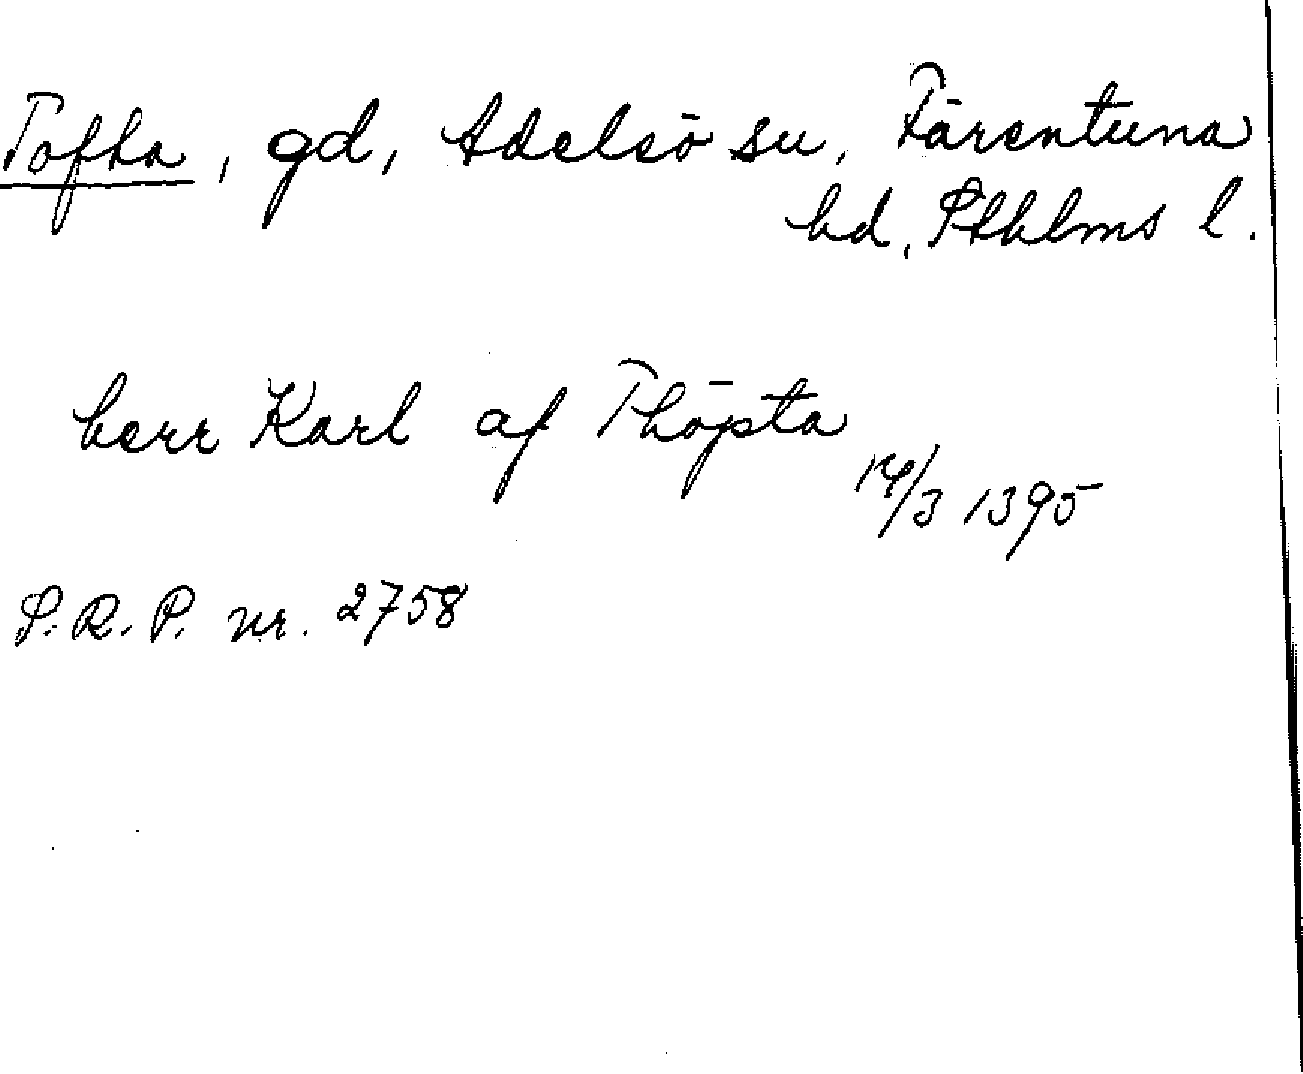 Tofta, gd, Adelsö sn, Färentuna
hd, Sthlms l.
herr Karl af Thöpta
14/3 1395
S.R.P. nr. 2758